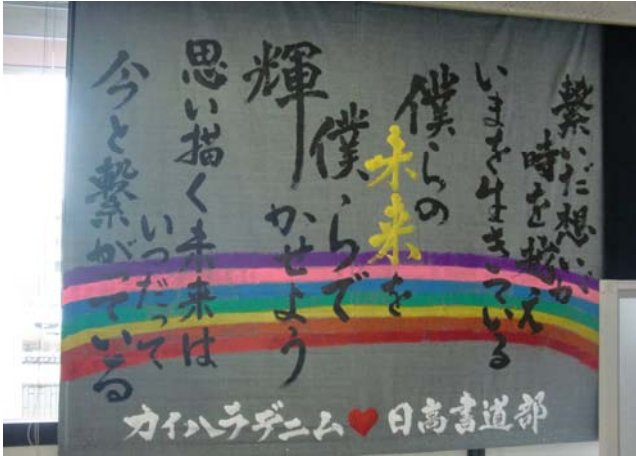 繋いだ想いが
時を越え
いまを生きている
僕らの
未来を
僕らで
輝かせよう
思い描く未来は
いつだって
今と繋がっている
カイハラデニム♥日高書道部